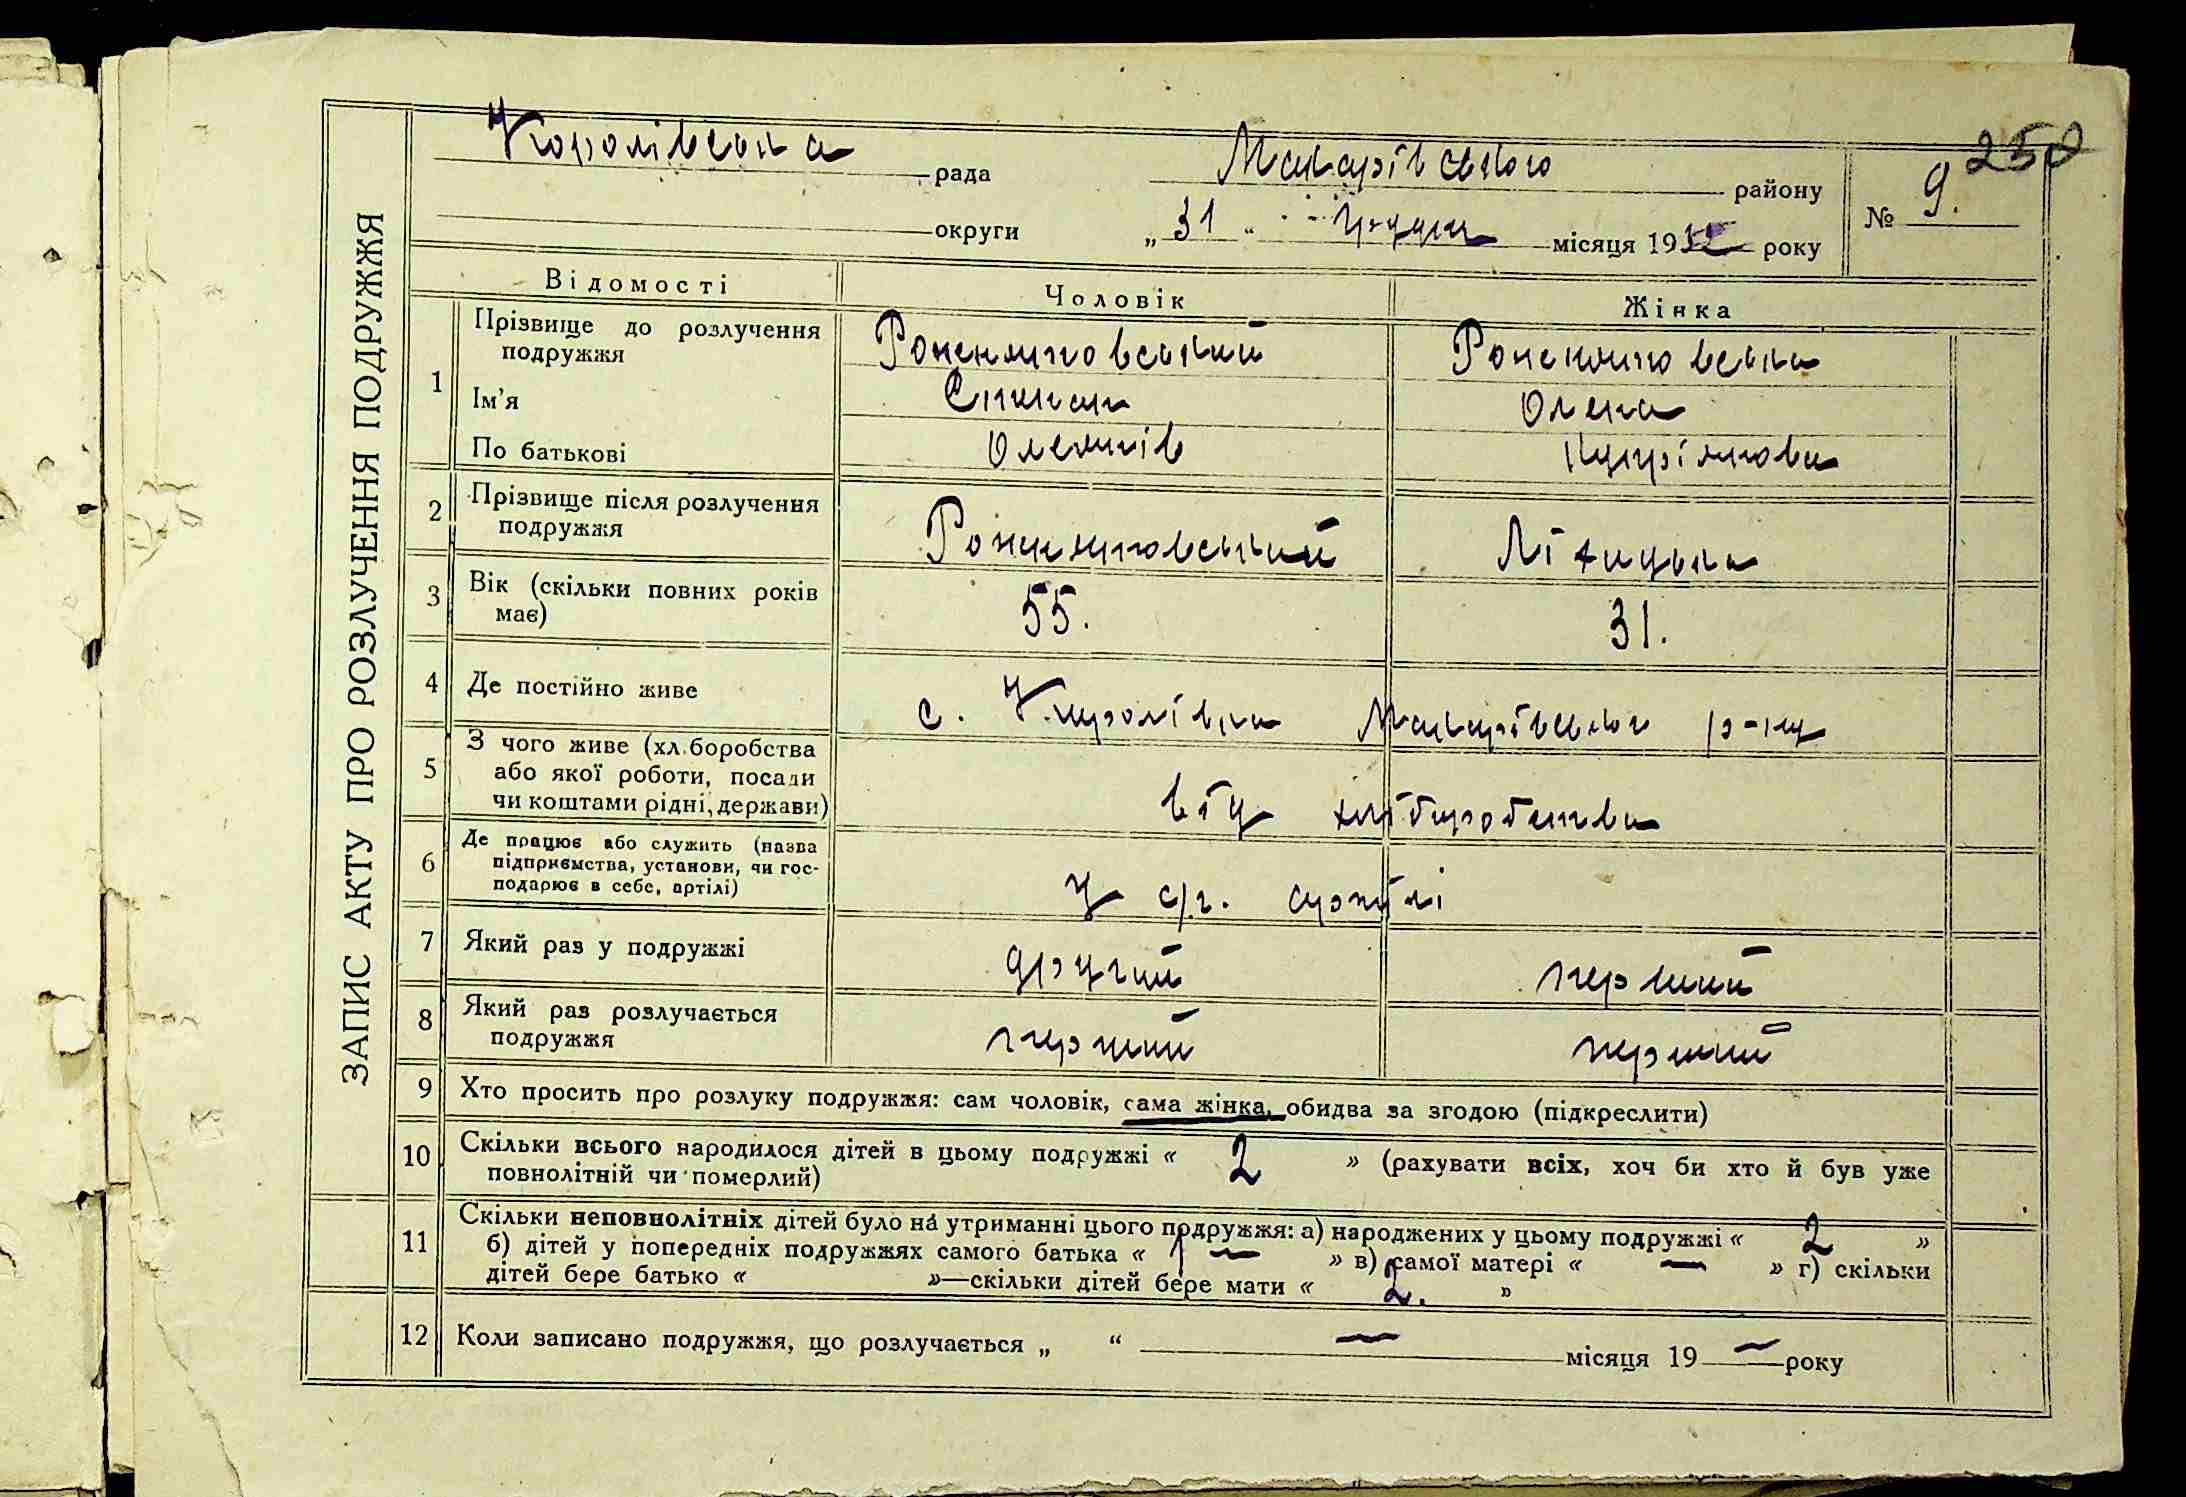 ЗАПИС АКТУ ПРО РОЗЛУЧЕННЯ ПОДРУЖЖЯ
250
Королівська рада Макарівського району № 9.
округи „ 31 “ грудня місяця 19 року
Відомості Чоловік Жінка
1 Прізвище до розлучення
подружжя
Ім'я Степан Олена
По батькові
2 Прізвище після розлучення
подружжя
3 Вік (скільки повних років
має) 55. 31.
4 Де постійно живе с. Королівка Макарівського р-ну
5 З чого живе (хл.боробства
або якої роботи, посади
чи коштами рідні, держави) від хліборобства
6 Де працює або служить (назва
підприємства, установи, чи гос-
подарює в себе, артілі) у с/г. артілі
7 Який раз у подружжі другий перший
8 Який раз розлучається
подружжя перший перший
9 Хто просить про розлуку подружжя: сам чоловік, сама жінка, обидва за згодою (підкреслити)
10 Скільки всього народилося дітей в цьому подружжі « 2 » (рахувати всіх, хоч би хто й був уже
повнолітній чи померлий)
11 Скільки неповнолітніх дітей було на утриманні цього подружжя: а) народжених у цьому подружжі « 2 »
б) дітей у попередніх подружжях самого батька « — » в) самої матері « — » г) скільки
дітей бере батько « »—скільки дітей бере мати « 2. »
12 Коли записано подружжя, що розлучається „ “ — місяця 19 — року